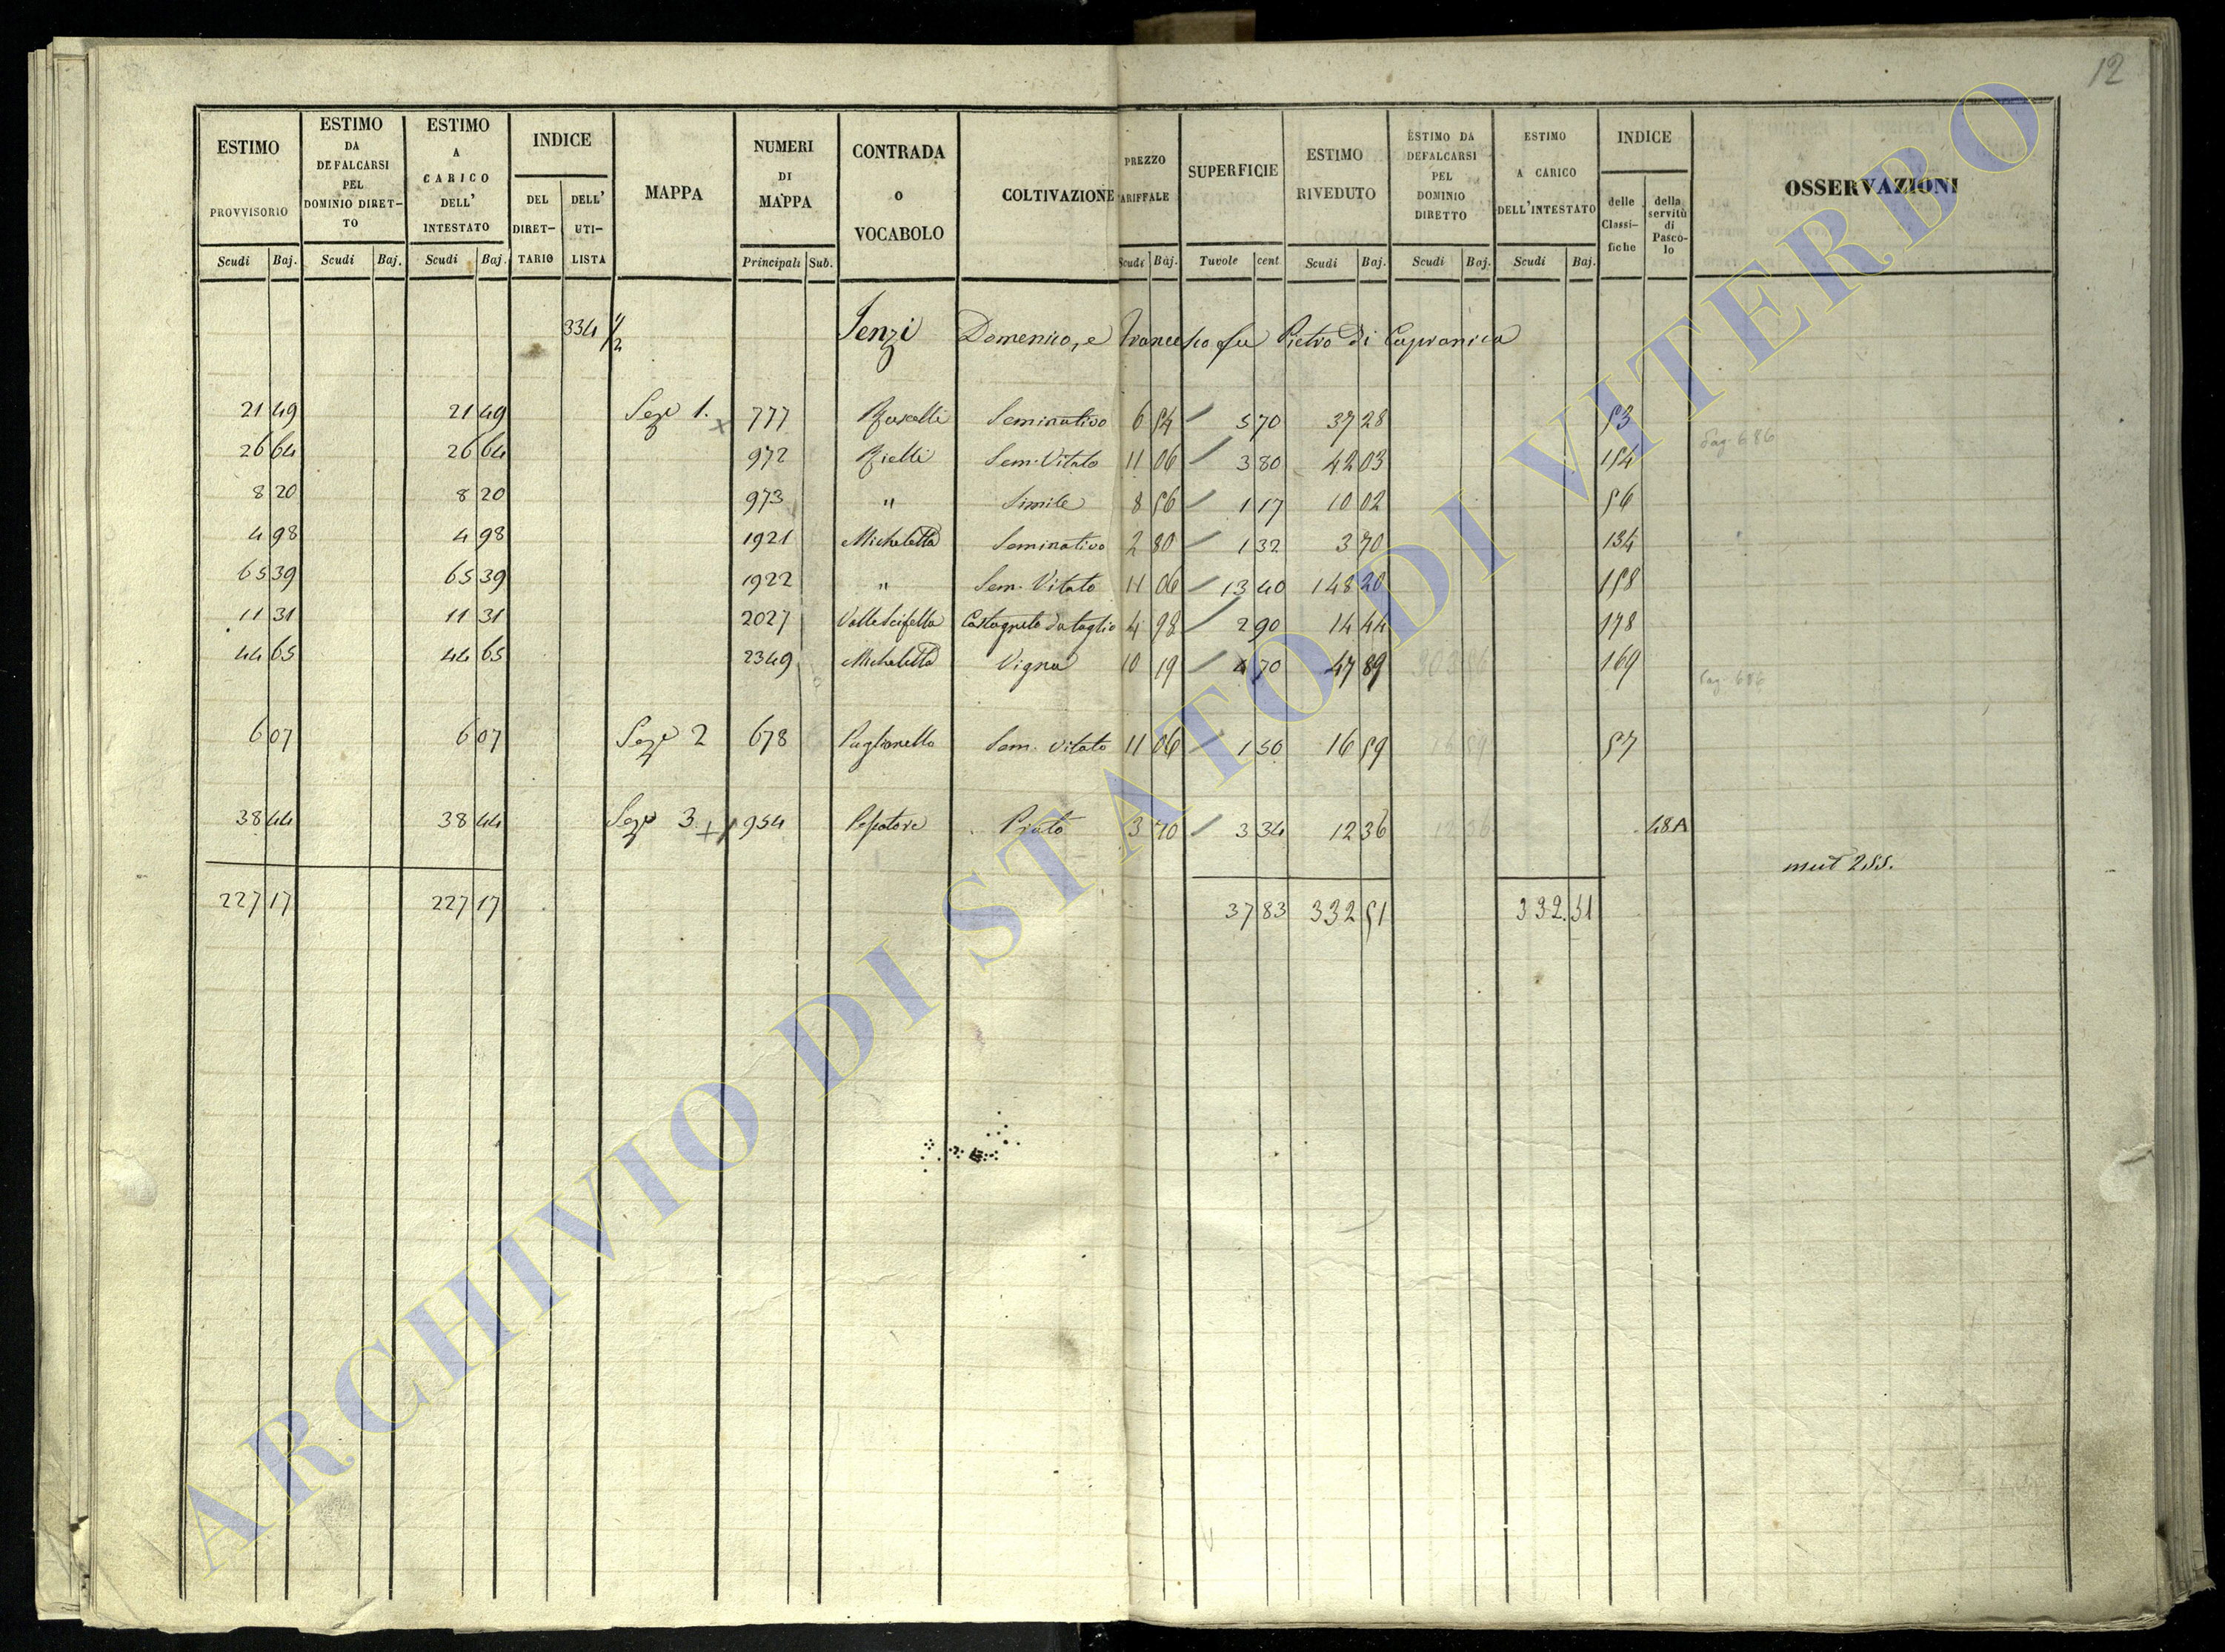 12
ESTIMO PROVVISORIO Scudi Baj.
ESTIMO DA DEFALCARSI PEL DOMINIO DIRET- TO Scudi Baj.
ESTIMO A CARICO DELL' INTESTATO Scudi Baj.
INDICE DEL DIRET- TARIO DELL' UTI- LISTA
MAPPA
NUMERI DI MAPPA Principali Sub.
CONTRADA O VOCABOLO
COLTIVAZIONE
PREZZO TARIFFALE Scudi Baj.
SUPERFICIE Tavole cent
ESTIMO RIVEDUTO Scudi Baj.
ESTIMO DA DEFALCARSI PEL DOMINIO DIRETTO Scudi Baj.
ESTIMO A CARICO DELL'INTESTATO Scudi Baj.
INDICE delle Classi- fiche della servitù di Pasco- lo
OSSERVAZIONI
334 1/2 Senzi Domenico, e Francesco fu Pietro di Capranica
21 49 21 49 Seze 1. x 777 Seminativo 6 54 5 70 37 28 53
Pag. 686
26 64 26 64 972 Rielli Sem. Vitato 11 06 3 80 42 03 154
8 20 8 20 973 " Simile 8 56 1 17 10 02 56
4 98 4 98 1921 Micheletta Seminativo 2 80 1 32 3 70 134
65 39 65 39 1922 " Sem. Vitato 11 06 13 40 148 20 158
11 31 11 31 2027 Valle Castagneto da taglio 4 98 2 90 14 44 178
44 65 44 65 2349 Micheletta Vigna 10 19 4 70 47 89 169
Pag. 686
6 07 6 07 Seze 2 678 Paglianello Sem. vitato 11 06 1 50 16 59 57
38 44 38 44 Seze 3 + 954 Prato 3 70 3 34 12 36 48A
mut 255.
227 17 227 17 37 83 332 51 332.51
ARCHIVIO DI STATO DI VITERBO